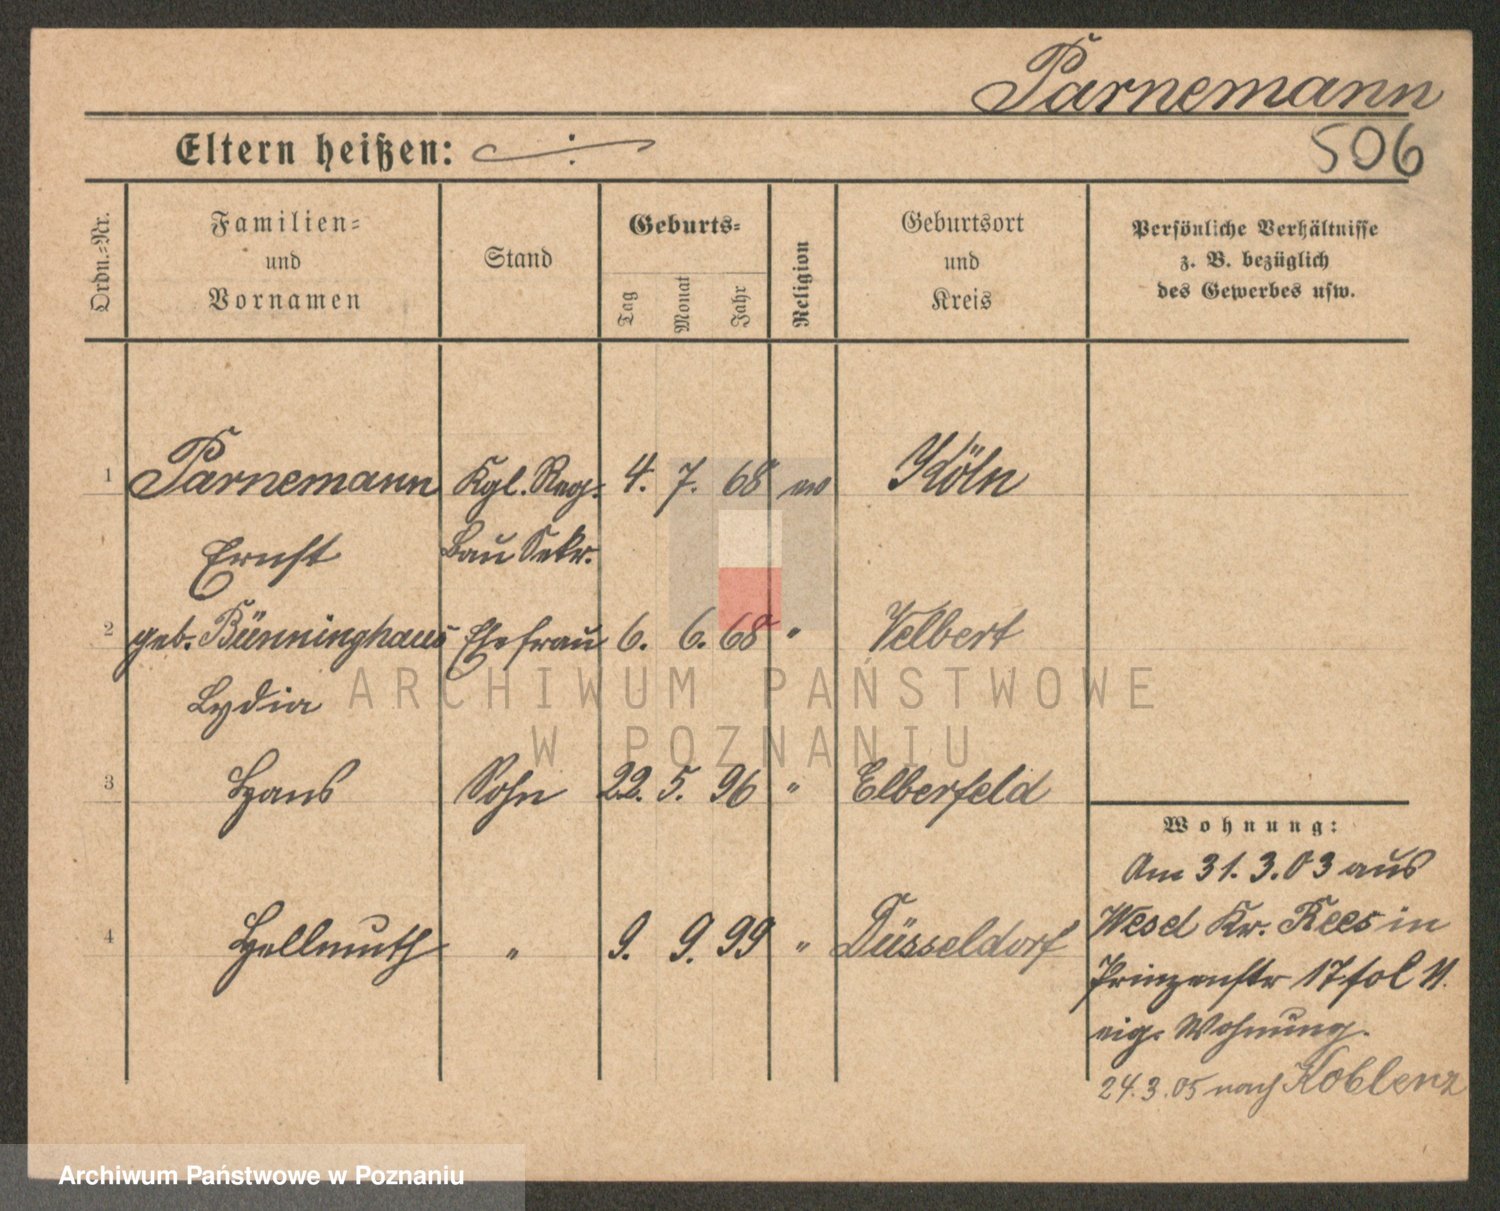 Parnemann
506
Eltern heißen: ·/·
Ordn.-Nr.
Familien-
und
Vornamen
Stand
Geburts-
Tag
Monat
Jahr
Religion
Geburtsort
und
Kreis
Persönliche Verhältnisse
z. B. bezüglich
des Gewerbes usw.
1 Parnemann Kgl. Reg. 4. 7. 68 ev Köln
Ernst Bau Sekr.
2 geb. Bünninghaus Ehefrau 6. 6. 68 " Velbert
Lydia
ARCHIWUM PAŃSTWOWE
W POZNANIU
3 Hans Sohn 22. 5. 96 " Elberfeld
4 Hellmuth " 9. 9. 99 " Düsseldorf
Wohnung:
Am 31. 3. 03 aus
Wesel Kr. Rees in
Prinzenstr 17
eig. Wohnung.
24. 3. 05 nach Koblenz
Archiwum Państwowe w Poznaniu